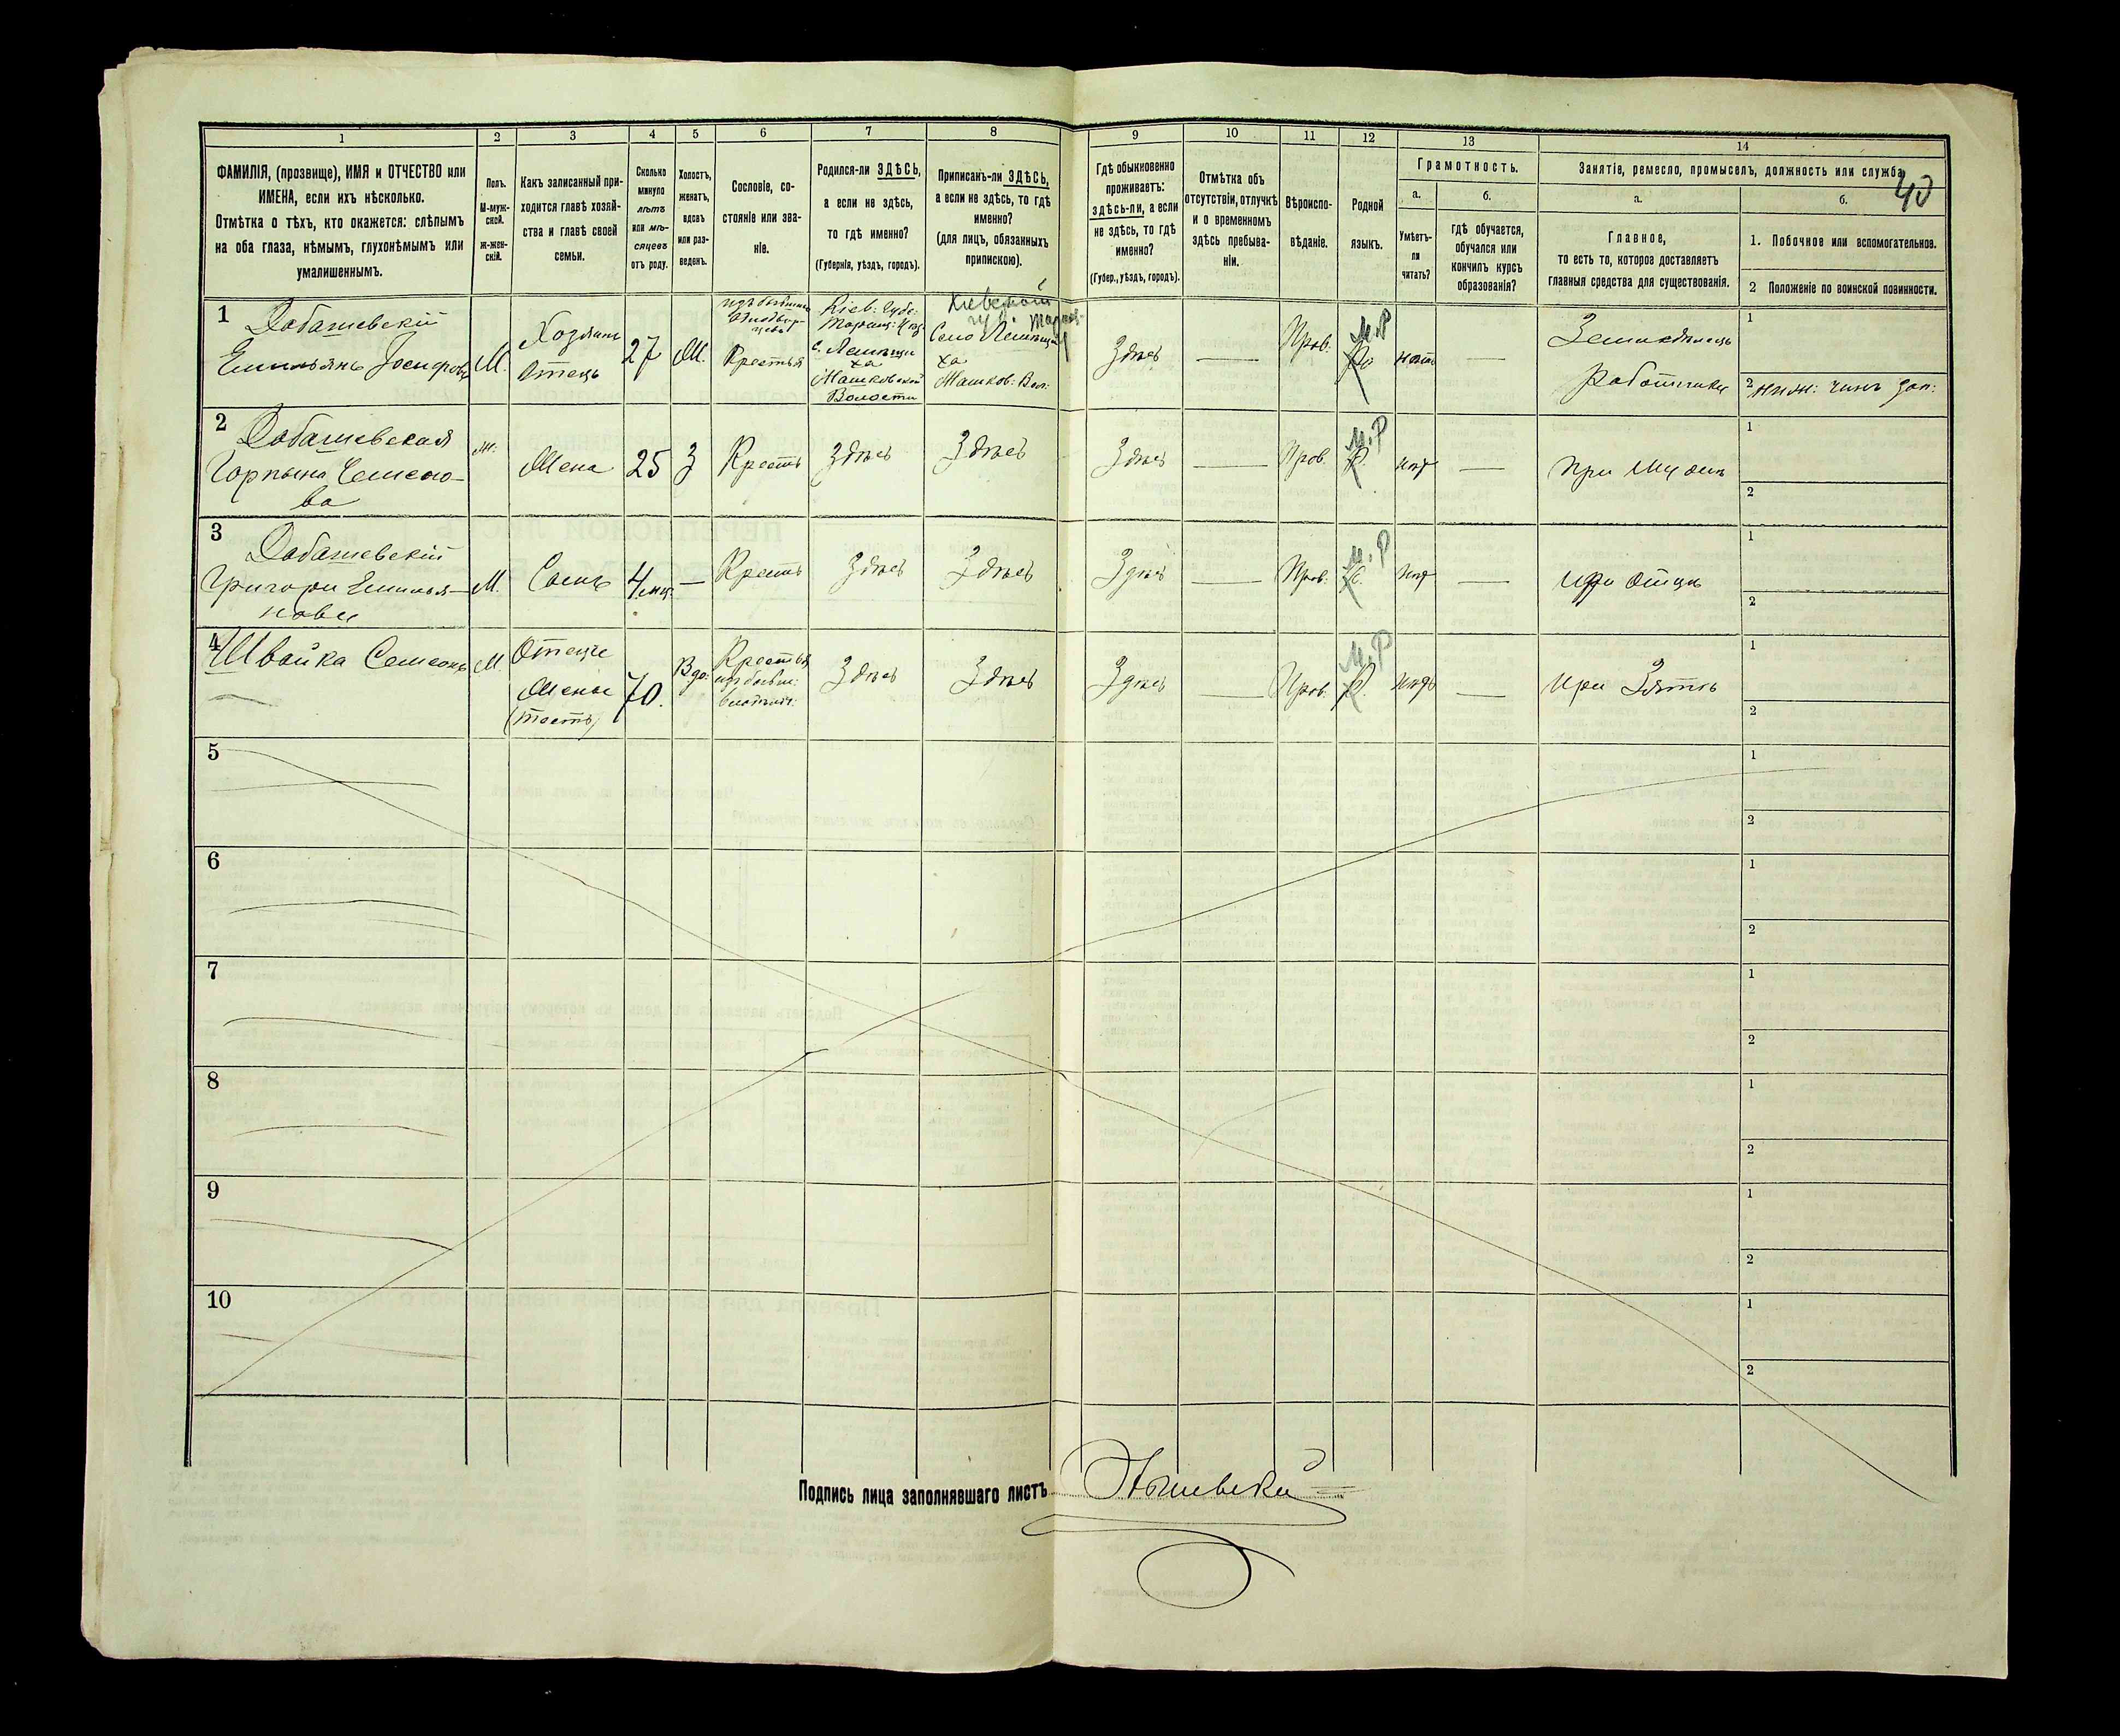 1 2 3 4 5 6 7 8 9 10 11 12 13 14
40
ФАМИЛІЯ, (прозвище), ИМЯ и ОТЧЕСТВО или
ИМЕНА, если ихъ нѣсколько.
Отмѣтка о тѣхъ, кто окажется: слѣпымъ
на оба глаза, нѣмымъ, глухонѣмымъ или
умалишеннымъ.
Полъ.
М-муж-
ской.
Ж-жен-
скій.
Какъ записанный при-
ходится главѣ хозяй-
ства и главѣ своей
семьи.
Сколько
минуло
лѣтъ
или мѣ-
сяцевъ
отъ роду.
Холостъ,
женатъ,
вдовъ
или раз-
веденъ.
Сословіе, со-
стояніе или зва-
ніе.
Родился-ли ЗДѢСЬ,
а если не здѣсь,
то гдѣ именно?
(Губернія, уѣздъ, городъ).
Приписанъ-ли ЗДѢСЬ,
а если не здѣсь, то гдѣ
именно?
(для лицъ, обязанныхъ
припискою).
Гдѣ обыкновенно
проживаетъ:
здѣсь-ли, а если
не здѣсь, то гдѣ
именно?
(Губер., уѣздъ, городъ).
Отмѣтка объ
отсутствіи, отлучкѣ
и о временномъ
здѣсь пребыва-
ніи.
Вѣроиспо-
вѣданіе.
Родной
языкъ.
Грамотность.
а.
Умѣетъ-
ли
читать?
б.
гдѣ обучается,
обучался или
кончилъ курсъ
образованія?
Занятіе, ремесло, промыселъ, должность или служба
а.
Главное,
то есть то, которое доставляетъ
главныя средства для существованія.
б.
1. Побочное или вспомогательное.
2 Положеніе по воинской повинности.
1
Добашевскій
М.
Хозяинъ
Отецъ
27
Ж.
Крестья
Кіев: Губе:
Машковской
Волости
Кіевской
губ.
Село
Машков: Вол:
Здѣсь
Пров.
М.Р
нѣтъ
Земледѣлецъ
Работникъ
1
2 нижн: чинъ зап:
2
Добашевская
Горпына Семено-
ва
ж.
Жена
25
З
Крестъ
Здѣсь
Здѣсь
Здѣсь
Пров.
М.Р
нѣт
При Мужѣ
1
2
3
Добашевскій
Григори Емилья-
нови
М.
Сынъ
4 мц.
Крестъ
Здѣсь
Здѣсь
Здѣсь
Пров.
М.Р
нѣт
при Отцѣ
1
2
4
Швайка Семенъ
М.
Отецъ
Жены
(тесть)
70.
Вдо:
Крестья
изъ бывш:
Здѣсь
Здѣсь
Здѣсь
Пров.
М.Р
При Зятѣ
1
2
5
1
2
6
1
2
7
1
2
8
1
2
9
1
2
10
1
2
Подпись лица заполнявшаго листъ